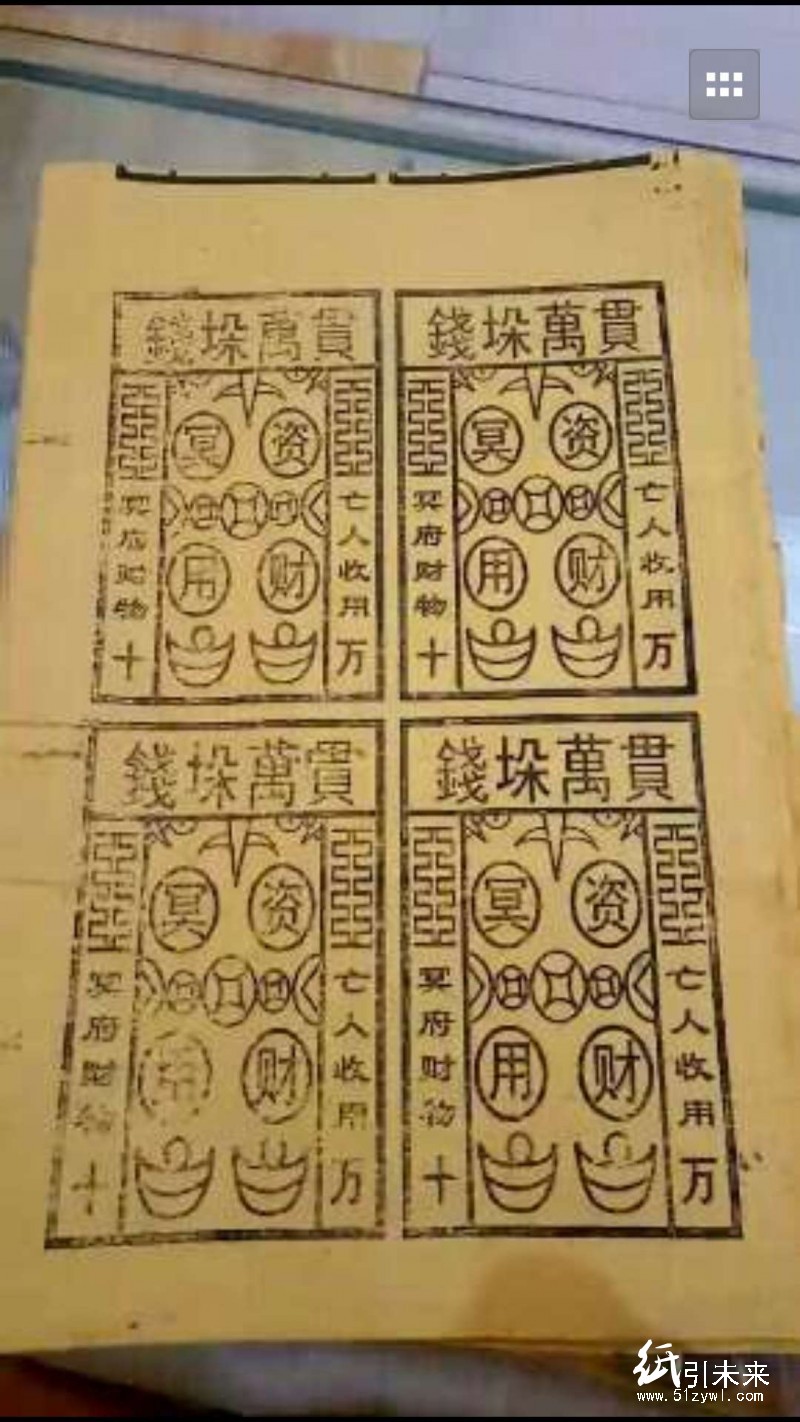 貫萬垛錢
亡人收用万
资财
冥用
冥府财物十
貫萬垛錢
亡人收用万
资财
冥用
冥府财物十
貫萬垛錢
亡人收用万
资财
冥用
冥府财物十
貫萬垛錢
亡人收用万
资财
冥用
冥府财物十
纸引未来
www.51zywl.com